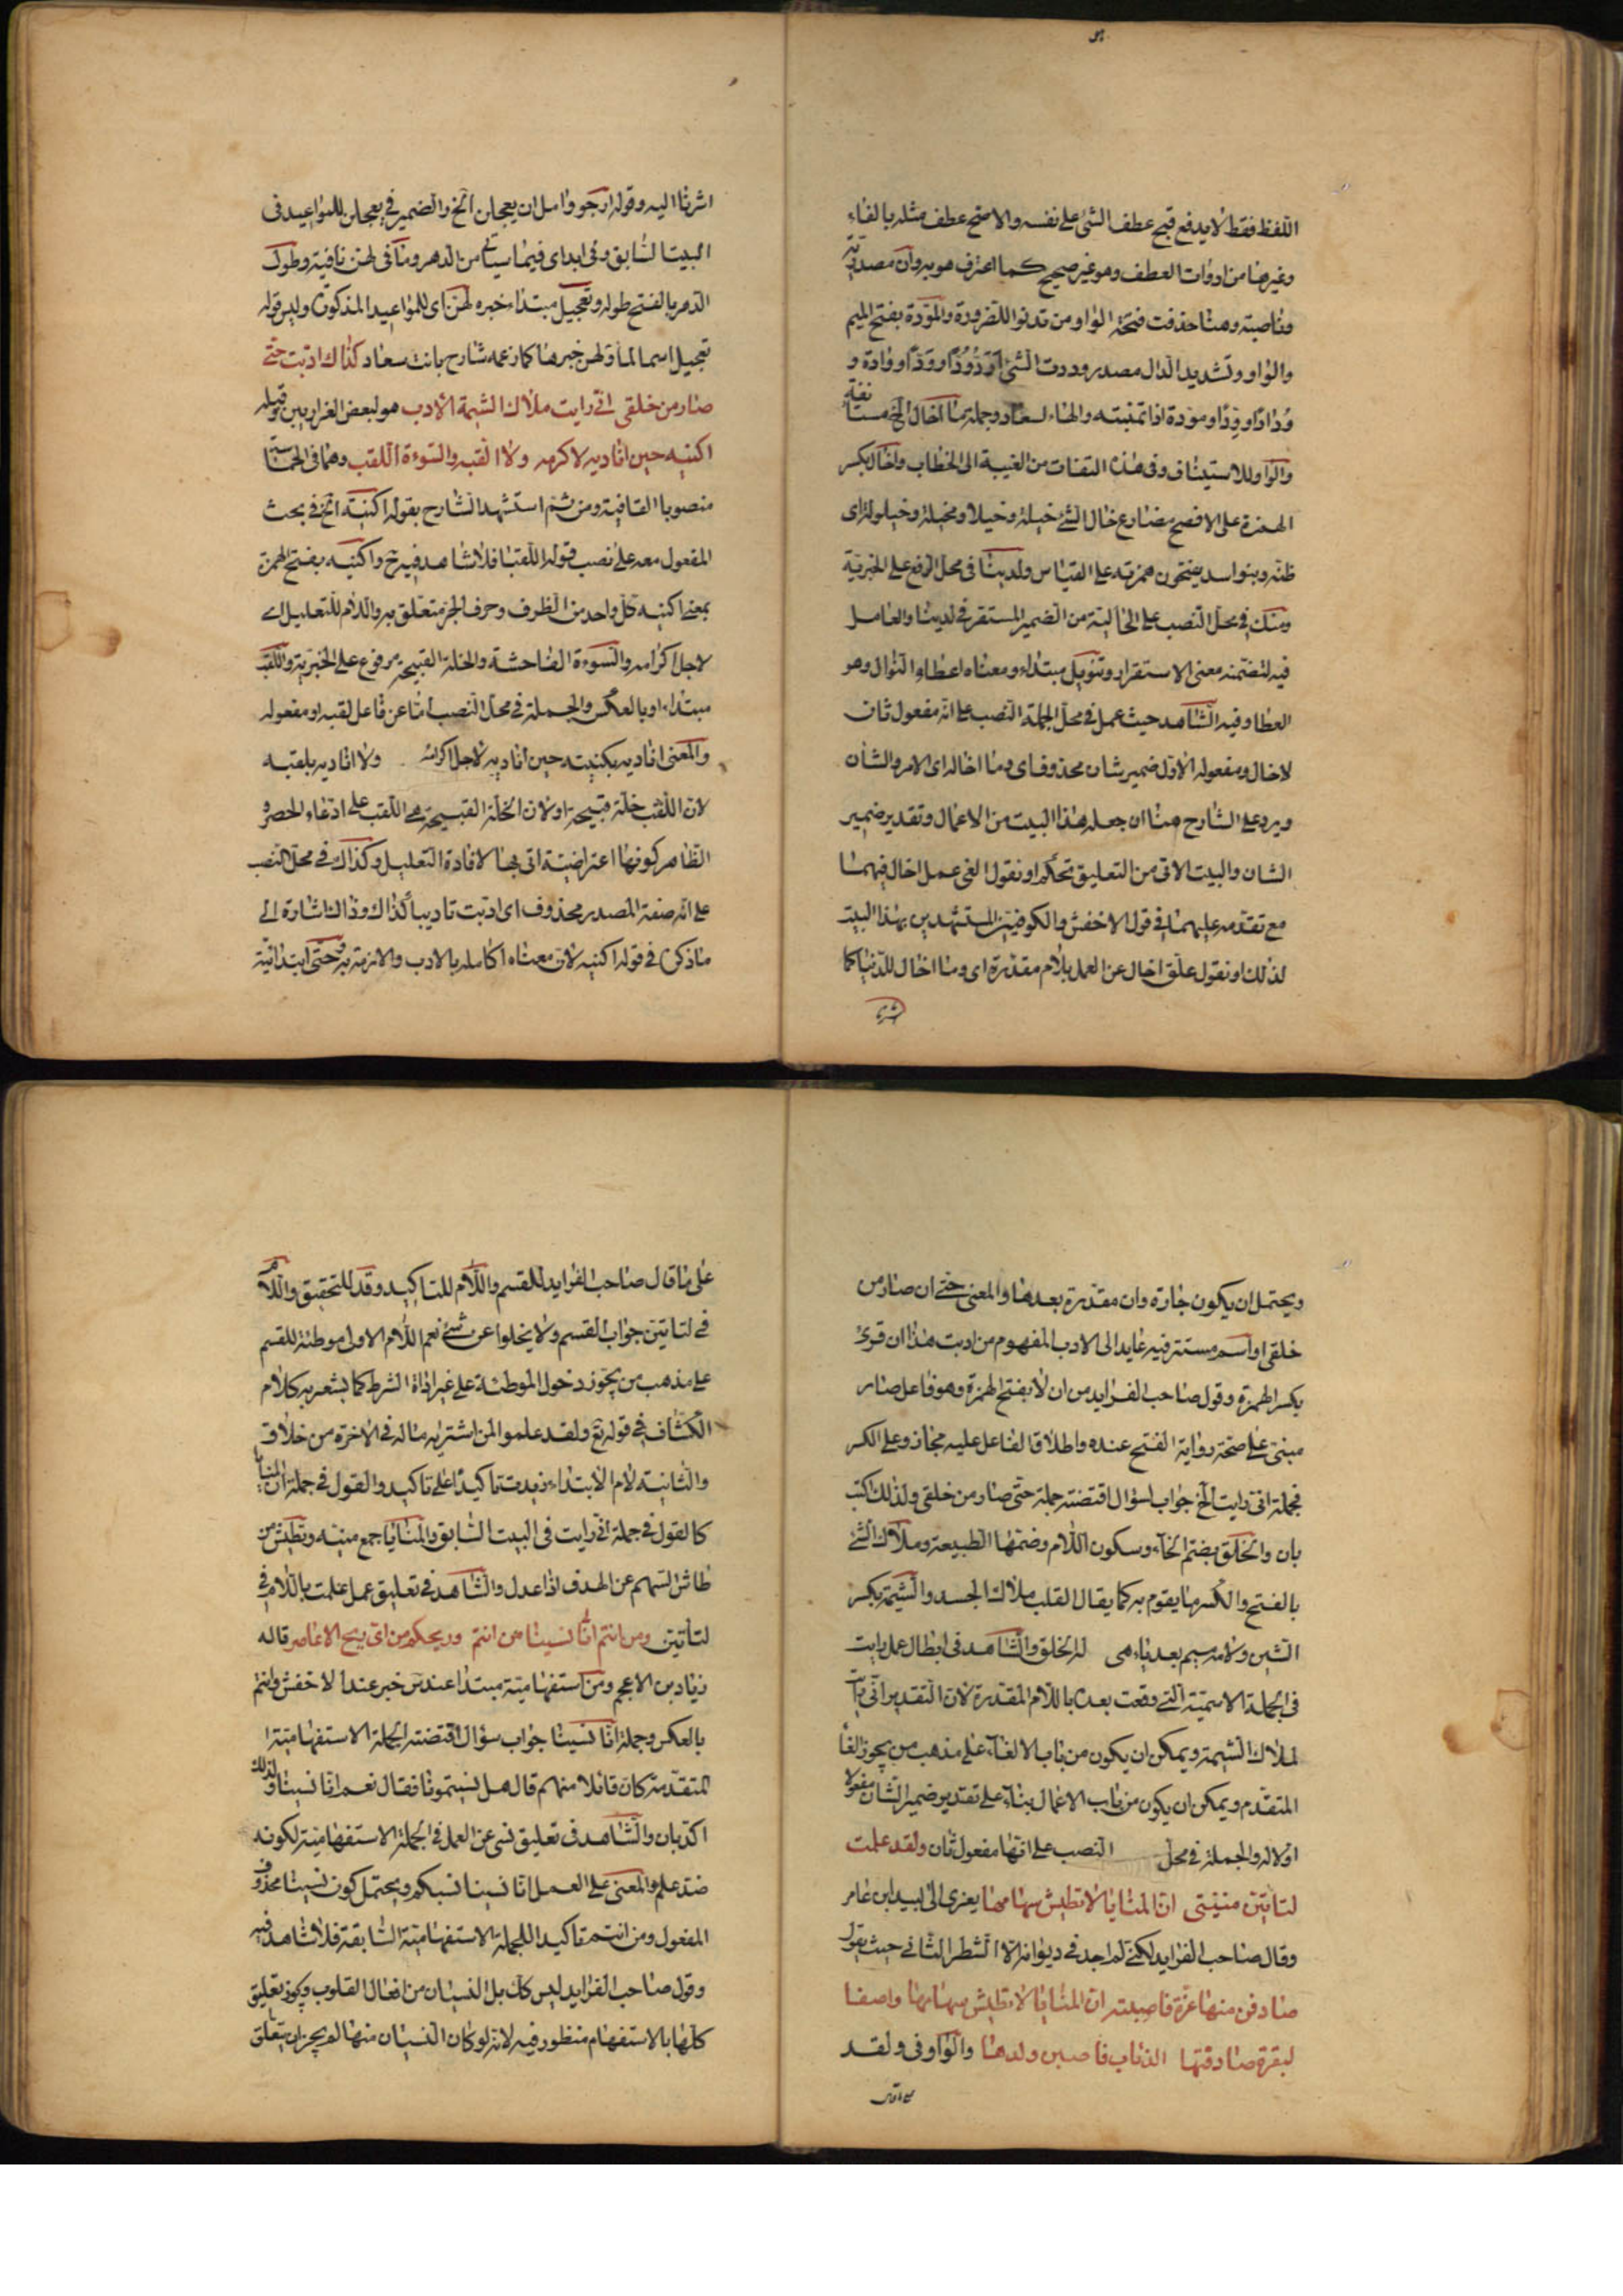 اللفظ فقط لا يدفع قبح عطف الشئ على نفسه والا صح عطف مثله بالفاء
وغيرها من ادوات العطف وهو غير صحيح كما اعترف هو به وان مصدرية
وناصبة وهنا حذفت فتحة الواو من تدنوا للضرورة والمودة بفتح الميم
والواو وتشديد الدال مصدر وددت الشئ اودّ وُدّا و وَدّا و وِدادة و
وُدادا و وِدّا و مودة اذا تمنيته والهاء لسعاد وجملة ما اخال الخ مستانفة
والواو للاستيناف وفى هذا التفات من الغيبة الى الخطاب واخال بكسر
الهمزة على الافصح مضارع خال الشئ خيلة وخيلا ومخيلة وخيلولة اى
ظنه وبنو اسد يفتحون همزته على القياس ولدينا فى محل الرفع على الخبرية
ومنك فى محل النصب على الحالية من الضمير المستقر فى لدينا والعامل
فيه لتضمنه معنى الاستقرار وتنويل مبتداء ومعناه اعطاء النوال وهو
العطا وفيه الشاهد حيث عمل فى محل الجملة النصب على انه مفعول ثان
لاخال ومفعوله الاول ضمير شان محذوف اى وما اخاله اى الامر والشأن
ويرد على الشارح هنا ان جعله هذا البيت من الاعمال وتقدير ضمير
الشان والبيت الاتى من التعليق تحكم او نقول الغى عمل اخال فيهما
مع تقدمه عليهما فى قول الاخفش والكوفيين المستشهدين بهذا البيت
لذلك او نقول علق اخال عن العمل بلام مقدرة اى وما اخال للدنيا كما
اشرنا اليه وقوله ارجو وامل ان يعجلن الخ والضمير فى يعجلن للمواعيد فى
البيت السابق وفى ابد اى فيما سياتى من الدهر وما فى لهن نافية وطول
الدهر بالفتح طوله وتعجيل مبتداء خبره لهن اى للمواعيد المذكورة وليس قوله
تعجيل اسما لما ولهن خبرها كما زعمه شارح بانت سعاد كذاك ادبت حتى
صار من خلقى انى رايت ملاك الشيمة الادب هو لبعض الفزاريين وقبله
اكنيه حين اناديه لاكرمه ولا القبه والسوءة اللقب وهما فى الحماسة
منصوبا القافية ومن ثم استشهد الشارح بقوله اكنيه الخ فى بحث
المفعول معه على نصب قوله اللقبا فلا شاهد فيه ح واكنيه بفتح الهمزة
بمعنى اكنيه كل واحد من الظرف وحرف الجر متعلق به واللام للتعليل اى
لاجل اكرامه والسوءة الفاحشة والخلة القبيحة مرفوع على الخبرية واللقب
مبتداء او بالعكس والجملة فى محل النصب اما عن فاعل لقبه او مفعوله
والمعنى اناديه بكنيته حين اناديه لاجل اكرامه ولا اناديه بلقبه
لان اللقب خلة قبيحة او لان الخلة القبيحة هى اللقب على ادعاء الحصر و
الظاهر كونها اعتراضية اتى بها لافادة التعليل وكذاك فى محل النصب
على انه صفة المصدر محذوف اى ادبت تاديبا كذاك وذاك اشارة الى
ما ذكره فى قوله اكنيه لان معناه اكامله بالادب والازمة به وحتى ابتدائية
ويحتمل ان يكون جارة وان مقدرة بعدها والمعنى حتى ان صار من
خلقى او اسم مستتر فيه عايد الى الادب المفهوم من ادبت هذا ان قرئ
بكسر الهمزة وقول صاحب الفرايد من ان لا بفتح الهمزة وهو فاعل صار
مبنى على صحة رواية الفتح عنده واطلاق الفاعل عليه مجاز وعلى الكسر
فجملة انى رايت الخ جواب لسؤال اقتضته جملة حتى صار من خلقى ولذلك اكتب
بان والخلق بضم الخاء وسكون اللام وضمها الطبيعة وملاك الشئ
بالفتح والكسر ما يقوم به كما يقال القلب ملاك الجسد والشيمة بكسر
الشين ولامه ميم بعد ياء هى له الخلق والشاهد فى ابطال عمل رايت
فى الجملة الاسمية التى وقعت بعده باللام المقدرة لان التقدير انى رايت
لملاك الشيمة ويمكن ان يكون من باب الالغاء على مذهب من يجوز الغاء
المتقدم ويمكن ان يكون من باب الاعمال بناء على تقدير ضمير الشان مفعولا
اولا له والجملة فى محل النصب على انها مفعول ثان ولقد علمت
لتاتين منيتى ان المنايا لا تطيش سهامها يعزى الى لبيد ابن عامر
وقال صاحب الفرايد لكنى لم اجد فى ديوانه الا الشطر الثانى حيث يقول
صادفن منها غرة فاصبنه ان المنايا لا تطيش سهامها واصفا
لبقرة صادفتها الذئاب فاصبن ولدها والواو فى ولقد
على ما قال
على ما قال صاحب الفرايد للقسم واللام للتاكيد وقد للتحقيق واللام
فى لتاتين جواب القسم ولا يخلوا عن شئ نعم اللام الاولى موطئة للقسم
على مذهب من يجوز دخول الموطئة على غير اداة الشرط كما يشعر به كلام
الكشاف فى قوله تع ولقد علموا لمن اشتريه ماله فى الاخرة من خلاق
والثانية لام الابتداء زيدت تاكيدا على تاكيد والقول فى جملة ان المنايا
كالقول فى جملة انى رايت فى البيت السابق والمنايا جمع منية وتطيش من
طاش السهم عن الهدف اذا عدل والشاهد فى تعليق عمل علمت باللام فى
لتاتين ومن انتم انا نسينا من انتم وريحكم من اى ريح الاعاصر قاله
زياد بن الاعجم ومن استفهامية مبتدا عند س خبر عند الاخفش وانتم
بالعكس وجملة انا نسينا جواب سؤال اقتضته الجملة الاستفهامية
المتقدمة كان قائلا منهم قال هل نسيتمونا فقال نعم انا نسينا ولذلك
اكد بان والشاهد فى تعليق نسى عن العمل فى الجملة الاستفهامية لكونه
ضد علم والمعنى على العمل انا نسينا نسبكم ويحتمل كون نسينا محذوف
المفعول ومن انتم تاكيدا للجملة الاستفهامية السابقة فلا شاهد فيه
وقول صاحب الفرايد ليس كك بل النسيان من افعال القلوب ويجوز تعليق
كلها بالاستفهام منظور فيه لانه لو كان النسيان منها لم يجز ان يتعلق